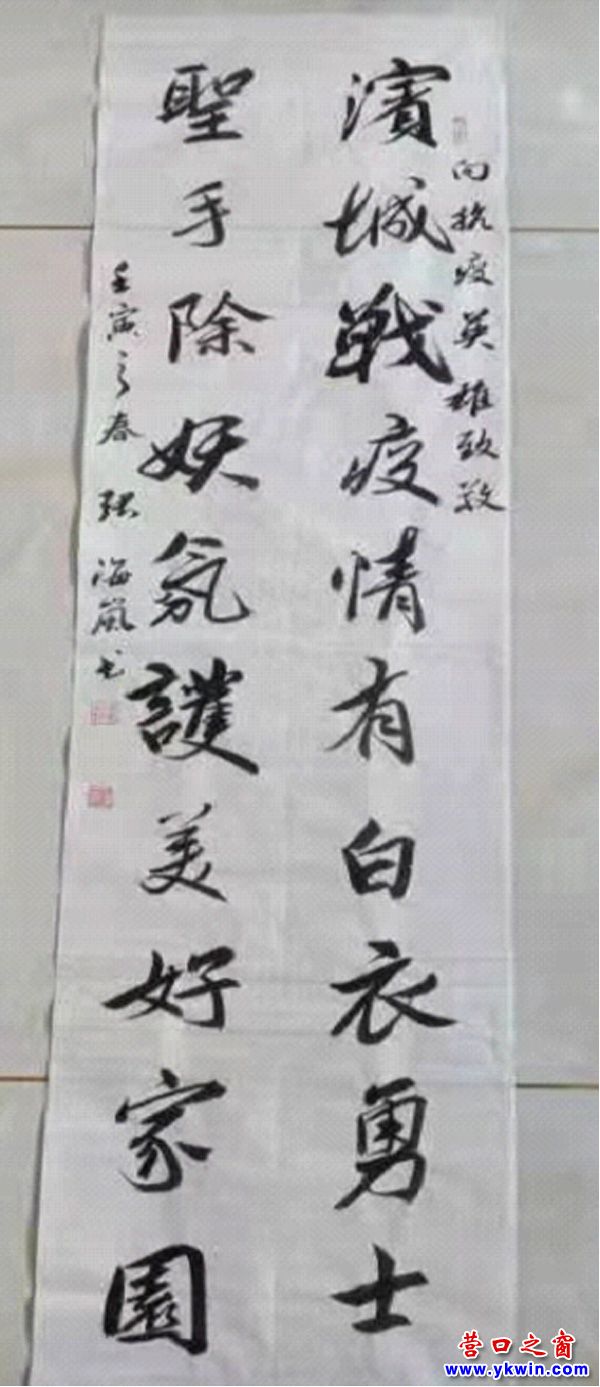 向抗疫英雄致敬
濱城戰疫情有白衣勇士
聖手除妖氛護美好家園
壬寅之春 張海嵐書
营口之窗
www.ykwin.com